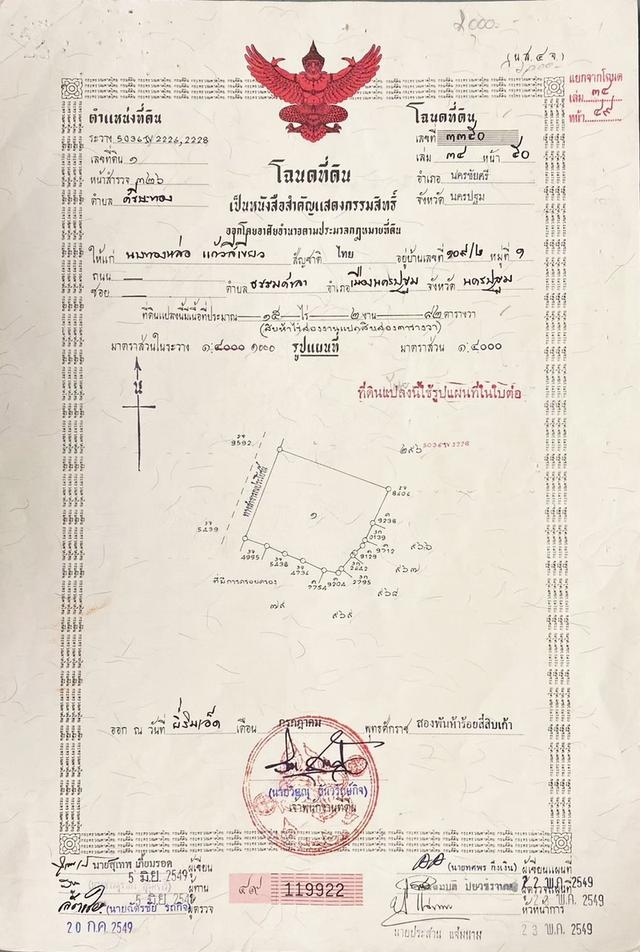 ๑๐๐๐-
(น.ส. ๔ จ.)
แยกจากโฉนด
เล่ม ๓๔
หน้า ๔๙
ตำแหน่งที่ดิน
ระวาง 5036 IV 2226, 2228
เลขที่ดิน ๑
หน้าสำรวจ ๓๒๖
ตำบล ศรีษะทอง
โฉนดที่ดิน
เลขที่ ๓๓๕๐
เล่ม ๓๔ หน้า ๕๐
อำเภอ นครชัยศรี
จังหวัด นครปฐม
โฉนดที่ดิน
เป็นหนังสือสำคัญแสดงกรรมสิทธิ์
ออกโดยอาศัยอำนาจตามประมวลกฎหมายที่ดิน
ให้แก่ นางทองหล่อ แก้วสีเขียว สัญชาติ ไทย อยู่บ้านเลขที่ ๑๐๙/๒ หมู่ที่ ๑
ถนน — ซอย — ตำบล ธรรมศาลา อำเภอ เมืองนครปฐม จังหวัด นครปฐม
ที่ดินแปลงนี้มีเนื้อที่ประมาณ ๑๕ ไร่ ๒ งาน ๘๒ ตารางวา
(สิบห้าไร่สองงานแปดสิบสองตารางวา)
มาตราส่วนในระวาง ๑:๔๐๐๐ ๑๐๐๐ รูปแผนที่ มาตราส่วน ๑:๔๐๐๐
น
ที่ดินแปลงนี้ใช้รูปแผนที่ในใบต่อ
๒๙๖ 5036 IV 2228
9592
ทางสาธารณประโยชน์
8404
๑
9238
5439
0139
9712
๙๖๖
4995
5438
4736
9129
2642
2795
๙๖๗
7754
9204
ที่มีการครอบครอง
๙๖๘
๗๙
๙๖๙
ออก ณ วันที่ ยี่สิบเอ็ด เดือน กรกฎาคม พุทธศักราช สองพันห้าร้อยสี่สิบเก้า
เจ้าพนักงานที่ดิน
นายสุเทพ เกี้ยมรอด ผู้เขียน
5 มิ.ย. 2549
ผู้ทาน
5 มิ.ย. 2549
(นายฉัตรชัย รถกิจ) ผู้ตรวจ
20 ก.ค. 2549
๔๙ 119922
(นายทศพร กึงเงิน) ผู้เขียนแผนที่
22 พ.ค. 2549
ผู้ตรวจแผนที่
หัวหน้าการ
นายประสาน แจ่มนาม 23 พ.ค. 2549